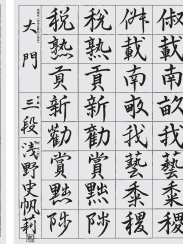 俶載南畝我藝黍稷
俶載南畝我藝黍稷
税熟貢新勸賞黜陟
税熟貢新勸賞黜陟
大門 三段 浅野史帆利